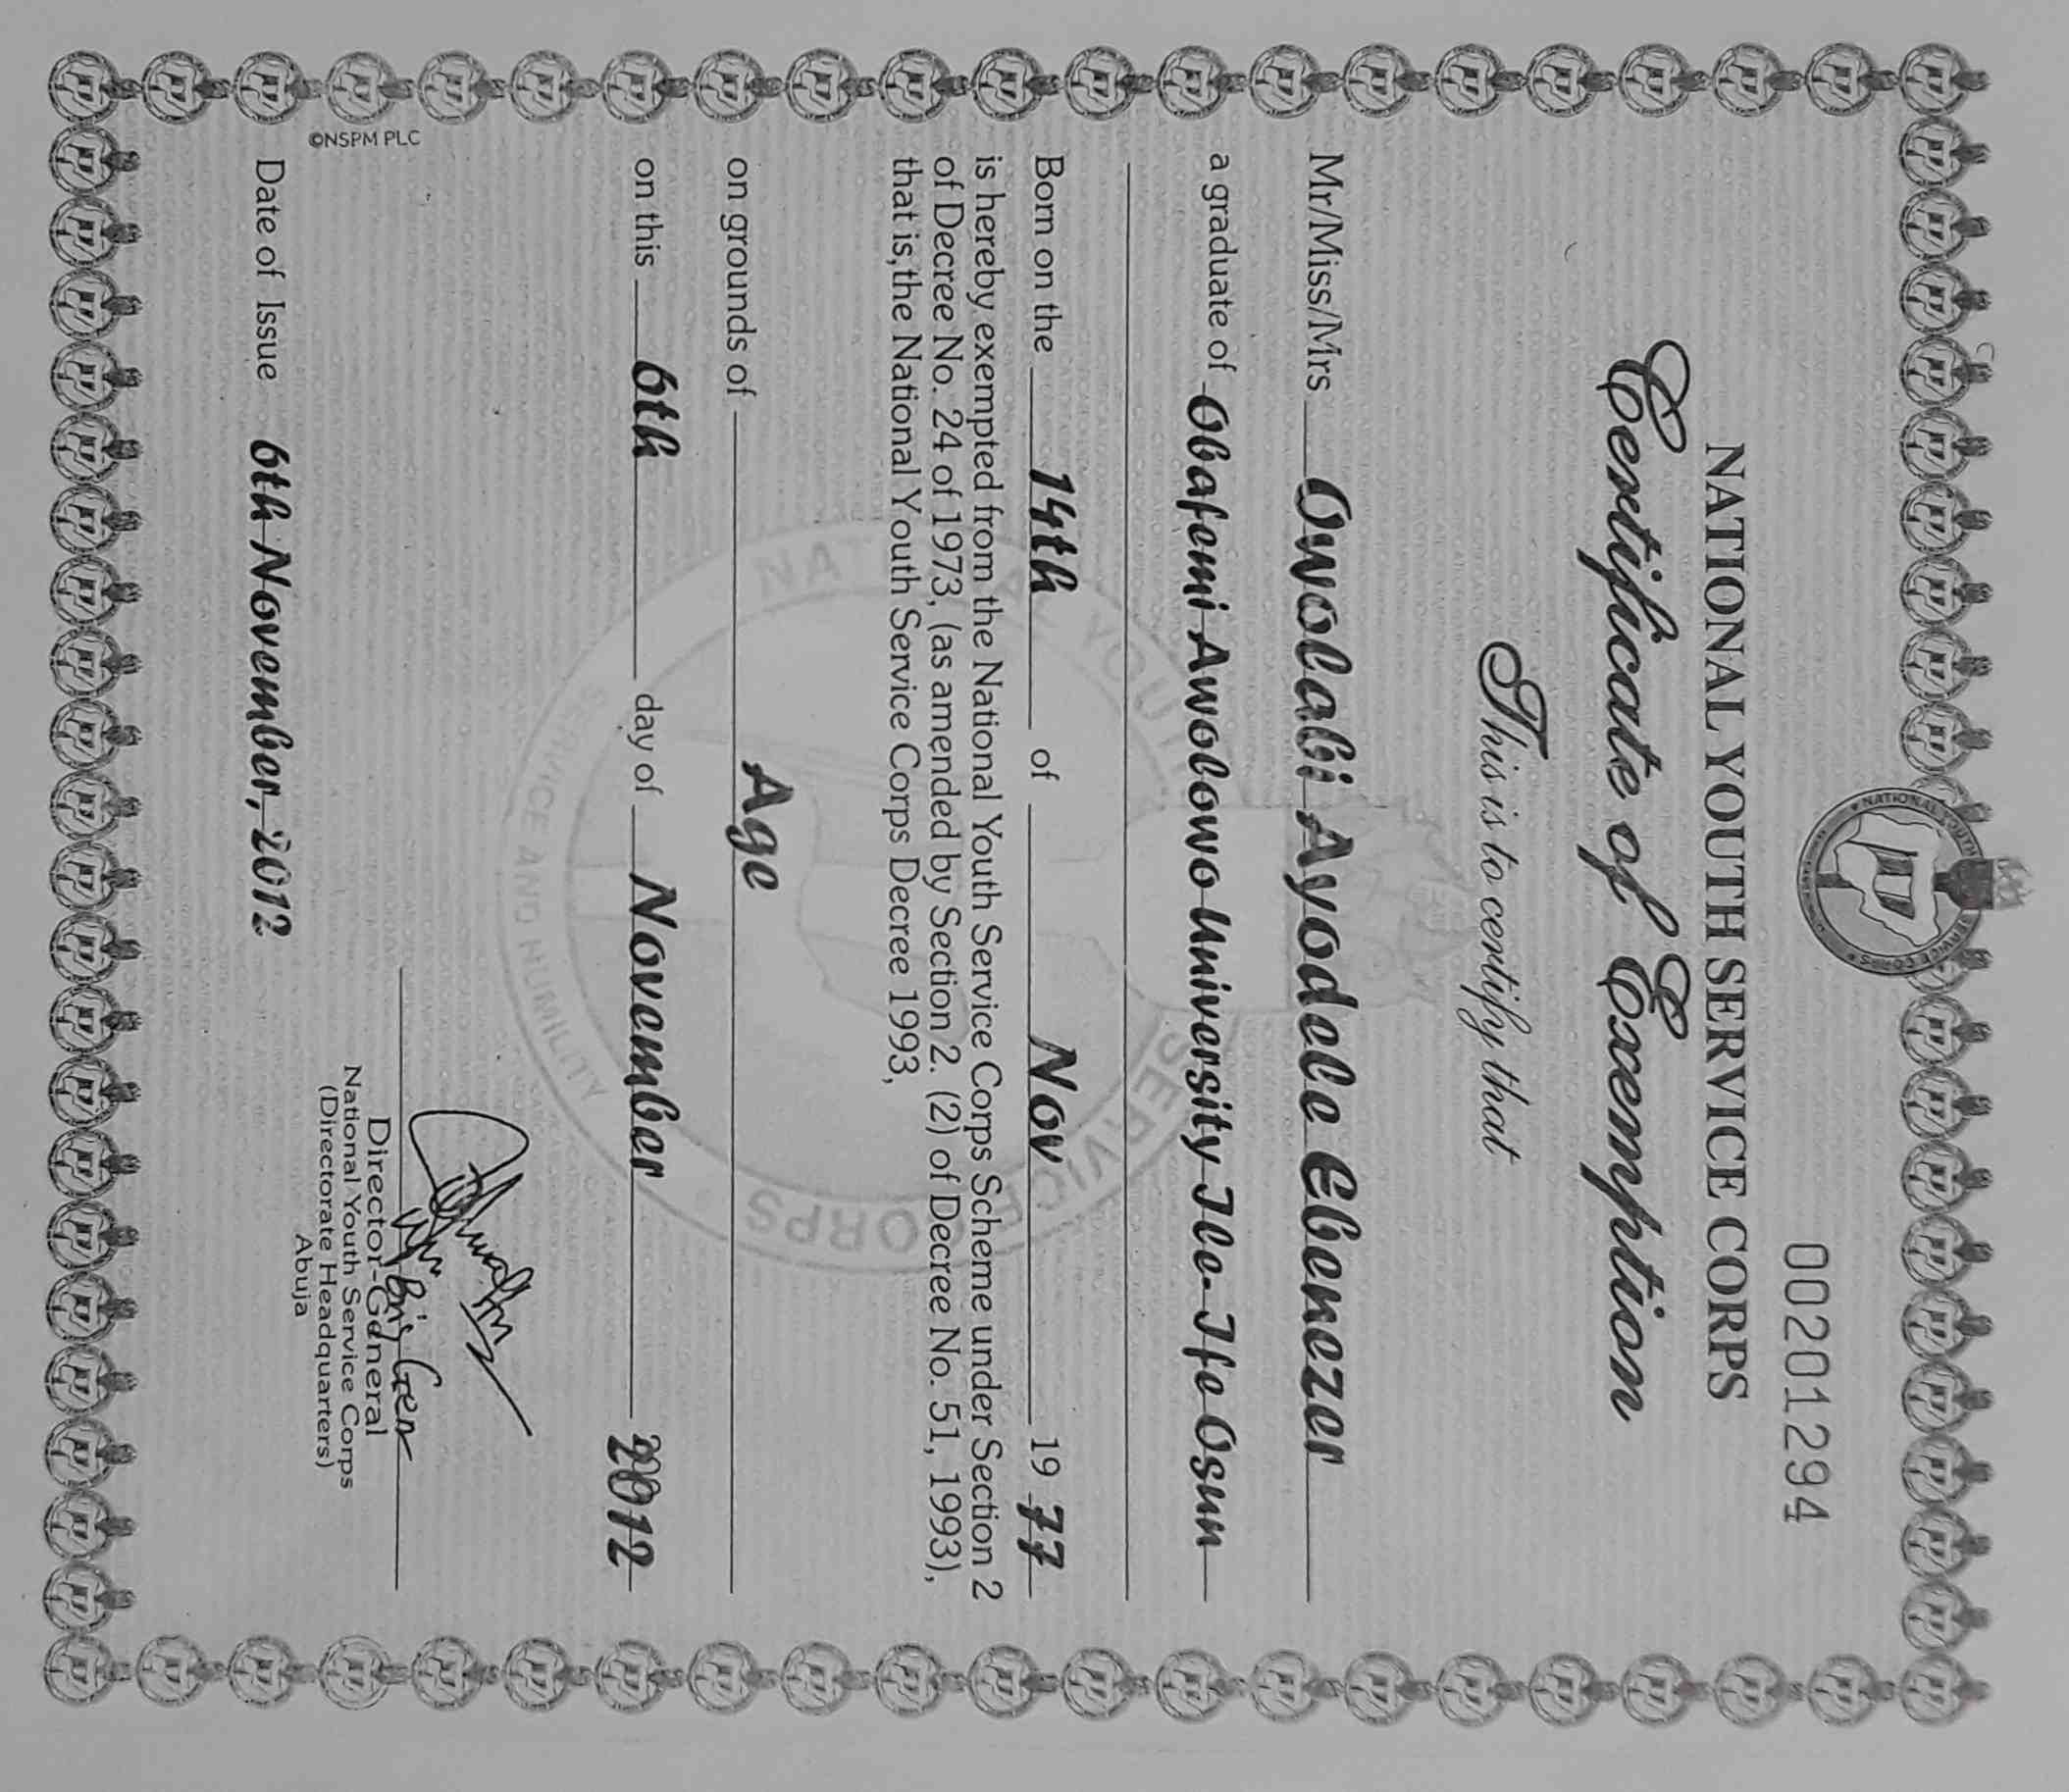 00201294
NATIONAL YOUTH SERVICE CORPS
Certificate of Exemption
This is to certify that
Mr/Miss/Mrs Owolabi Ayodele Ebenezer
a graduate of Obafemi Awolowo University Ile-Ife Osun
Born on the 14th of Nov 1977
is hereby exempted from the National Youth Service Corps Scheme under Section 2
of Decree No. 24 of 1973, (as amended by Section 2. (2) of Decree No. 51, 1993),
that is, the National Youth Service Corps Decree 1993,
on grounds of Age
on this 6th day of November 2012
Brig Gen
Director-General
National Youth Service Corps
(Directorate Headquarters)
Abuja
©NSPM PLC
Date of Issue 6th November, 2012
NATIONAL YOUTH SERVICE CORPS
SERVICE AND HUMILITY